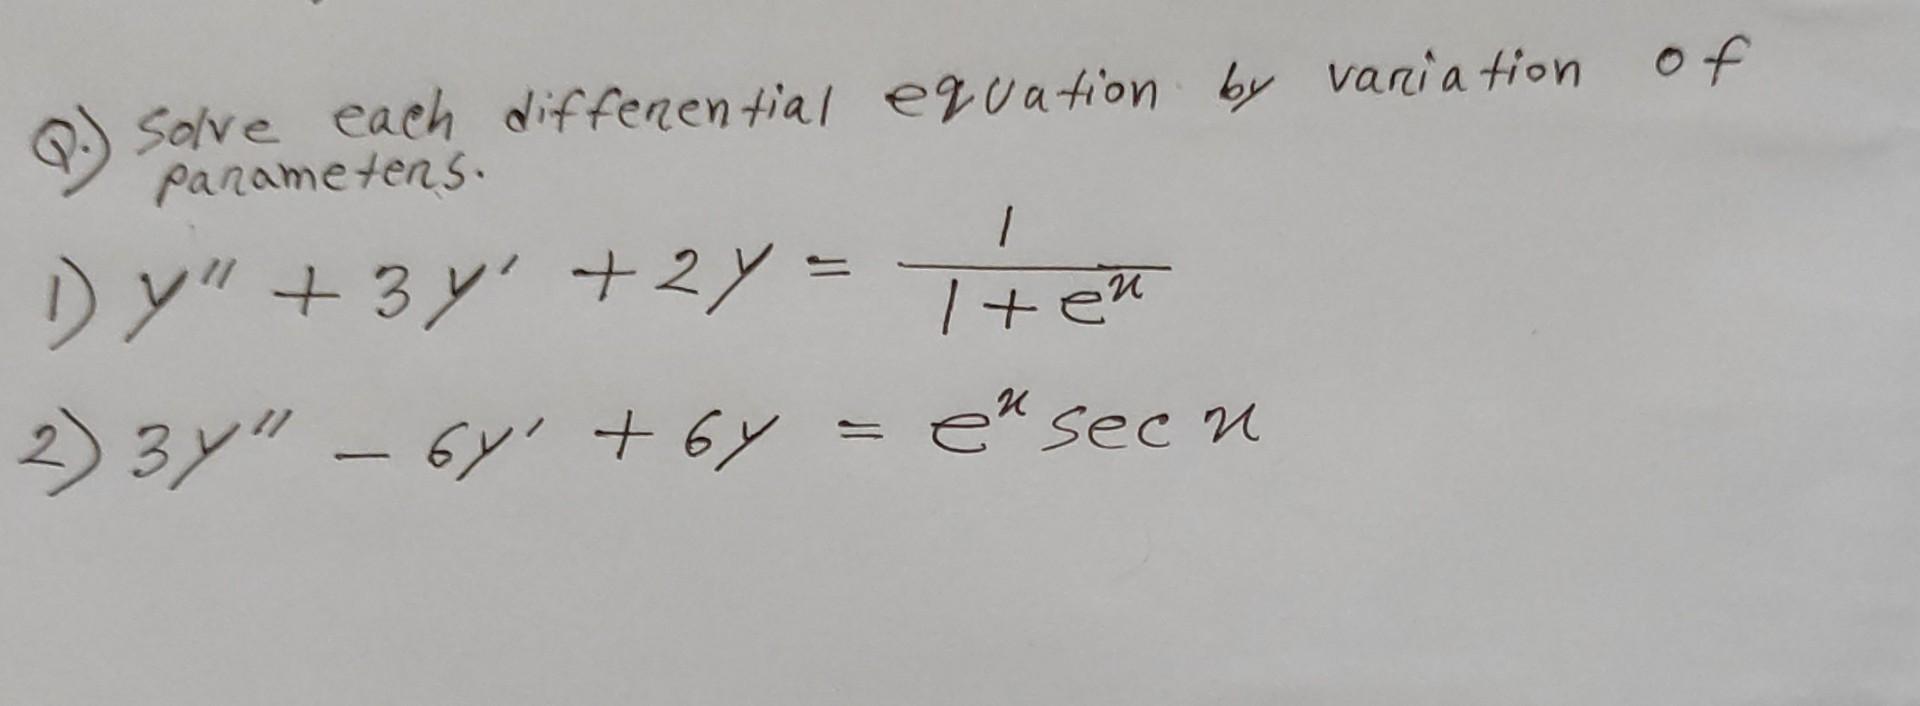 Q.) Solve each differential equation by variation of
parameters.
1) y'' + 3y' + 2y = 1/(1 + e^x)
2) 3y'' - 6y' + 6y = e^x sec x